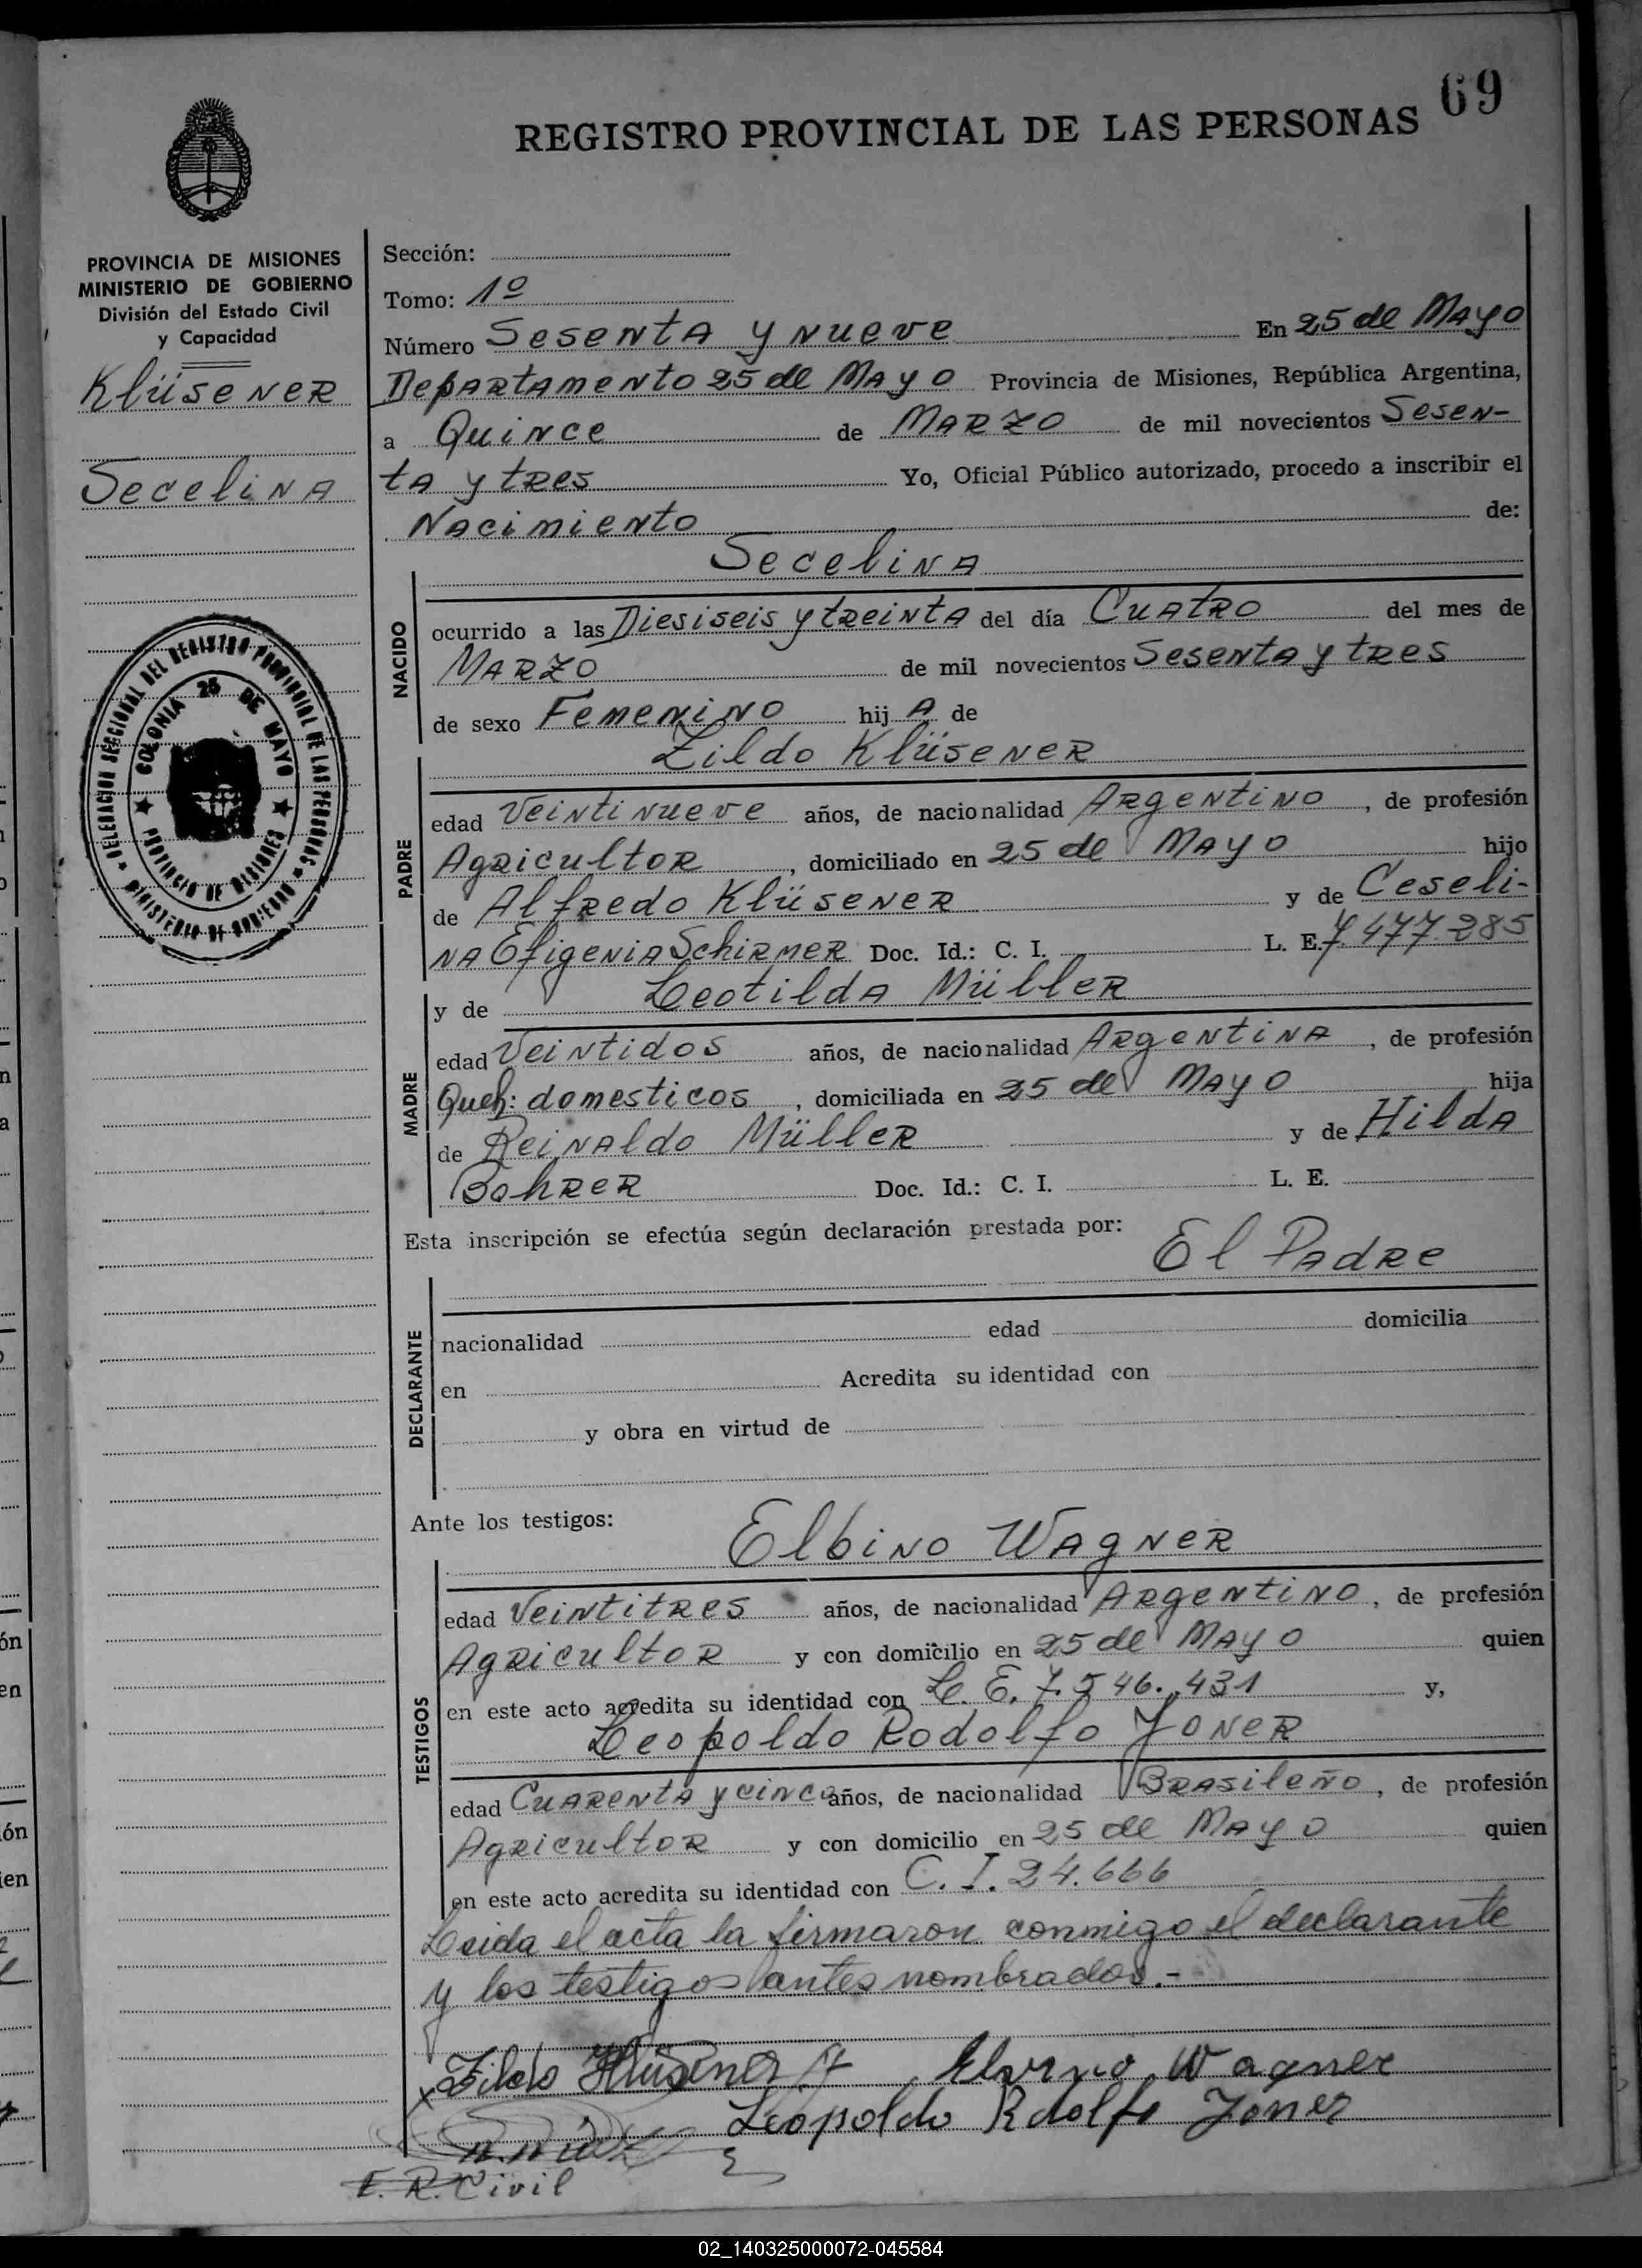 69
REGISTRO PROVINCIAL DE LAS PERSONAS
PROVINCIA DE MISIONES
MINISTERIO DE GOBIERNO
División del Estado Civil
y Capacidad
Klüsener
Secelina
DELEGACION SECCIONAL DEL REGISTRO PROVINCIAL DE LAS PERSONAS
MINISTERIO DE GOBIERNO
COLONIA 25 DE MAYO
PROVINCIA DE MISIONES
Sección:
Tomo: 1º
Número Sesenta y nueve En 25 de Mayo
Departamento 25 de Mayo Provincia de Misiones, República Argentina,
a Quince de Marzo de mil novecientos Sesen-
ta y tres Yo, Oficial Público autorizado, procedo a inscribir el
Nacimiento de:
Secelina
NACIDO
ocurrido a las Diesiseis y treinta del día Cuatro del mes de
Marzo de mil novecientos Sesenta y tres
de sexo Femenino hij a de
Zildo Klüsener
PADRE
edad Veintinueve años, de nacionalidad Argentino, de profesión
Agricultor, domiciliado en 25 de Mayo hijo
de Alfredo Klüsener y de Ceseli-
na Efigenia Schirmer Doc. Id.: C. I. L. E. 7.477.285
y de Leotilda Müller
MADRE
edad Veintidos años, de nacionalidad Argentina, de profesión
Queh: domesticos, domiciliada en 25 de Mayo hija
de Reinaldo Müller y de Hilda
Bohrer Doc. Id.: C. I. L. E.
Esta inscripción se efectúa según declaración prestada por:
El Padre
DECLARANTE
nacionalidad edad domicilia
en Acredita su identidad con
y obra en virtud de
Ante los testigos:
Elbino Wagner
TESTIGOS
edad Veintitres años, de nacionalidad Argentino, de profesión
Agricultor y con domicilio en 25 de Mayo quien
en este acto acredita su identidad con L. E. 7.546.431 y,
Leopoldo Rodolfo Joner
edad Cuarenta y cinco años, de nacionalidad Brasileño, de profesión
Agricultor y con domicilio en 25 de Mayo quien
en este acto acredita su identidad con C. I. 24.666
Leida el acta la firmaron conmigo el declarante
y los testigos antes nombrados.-
x Zildo Klüsener Elvino Wagner
Leopoldo Rdolfo Joner
E. R. Civil
02_140325000072-045584